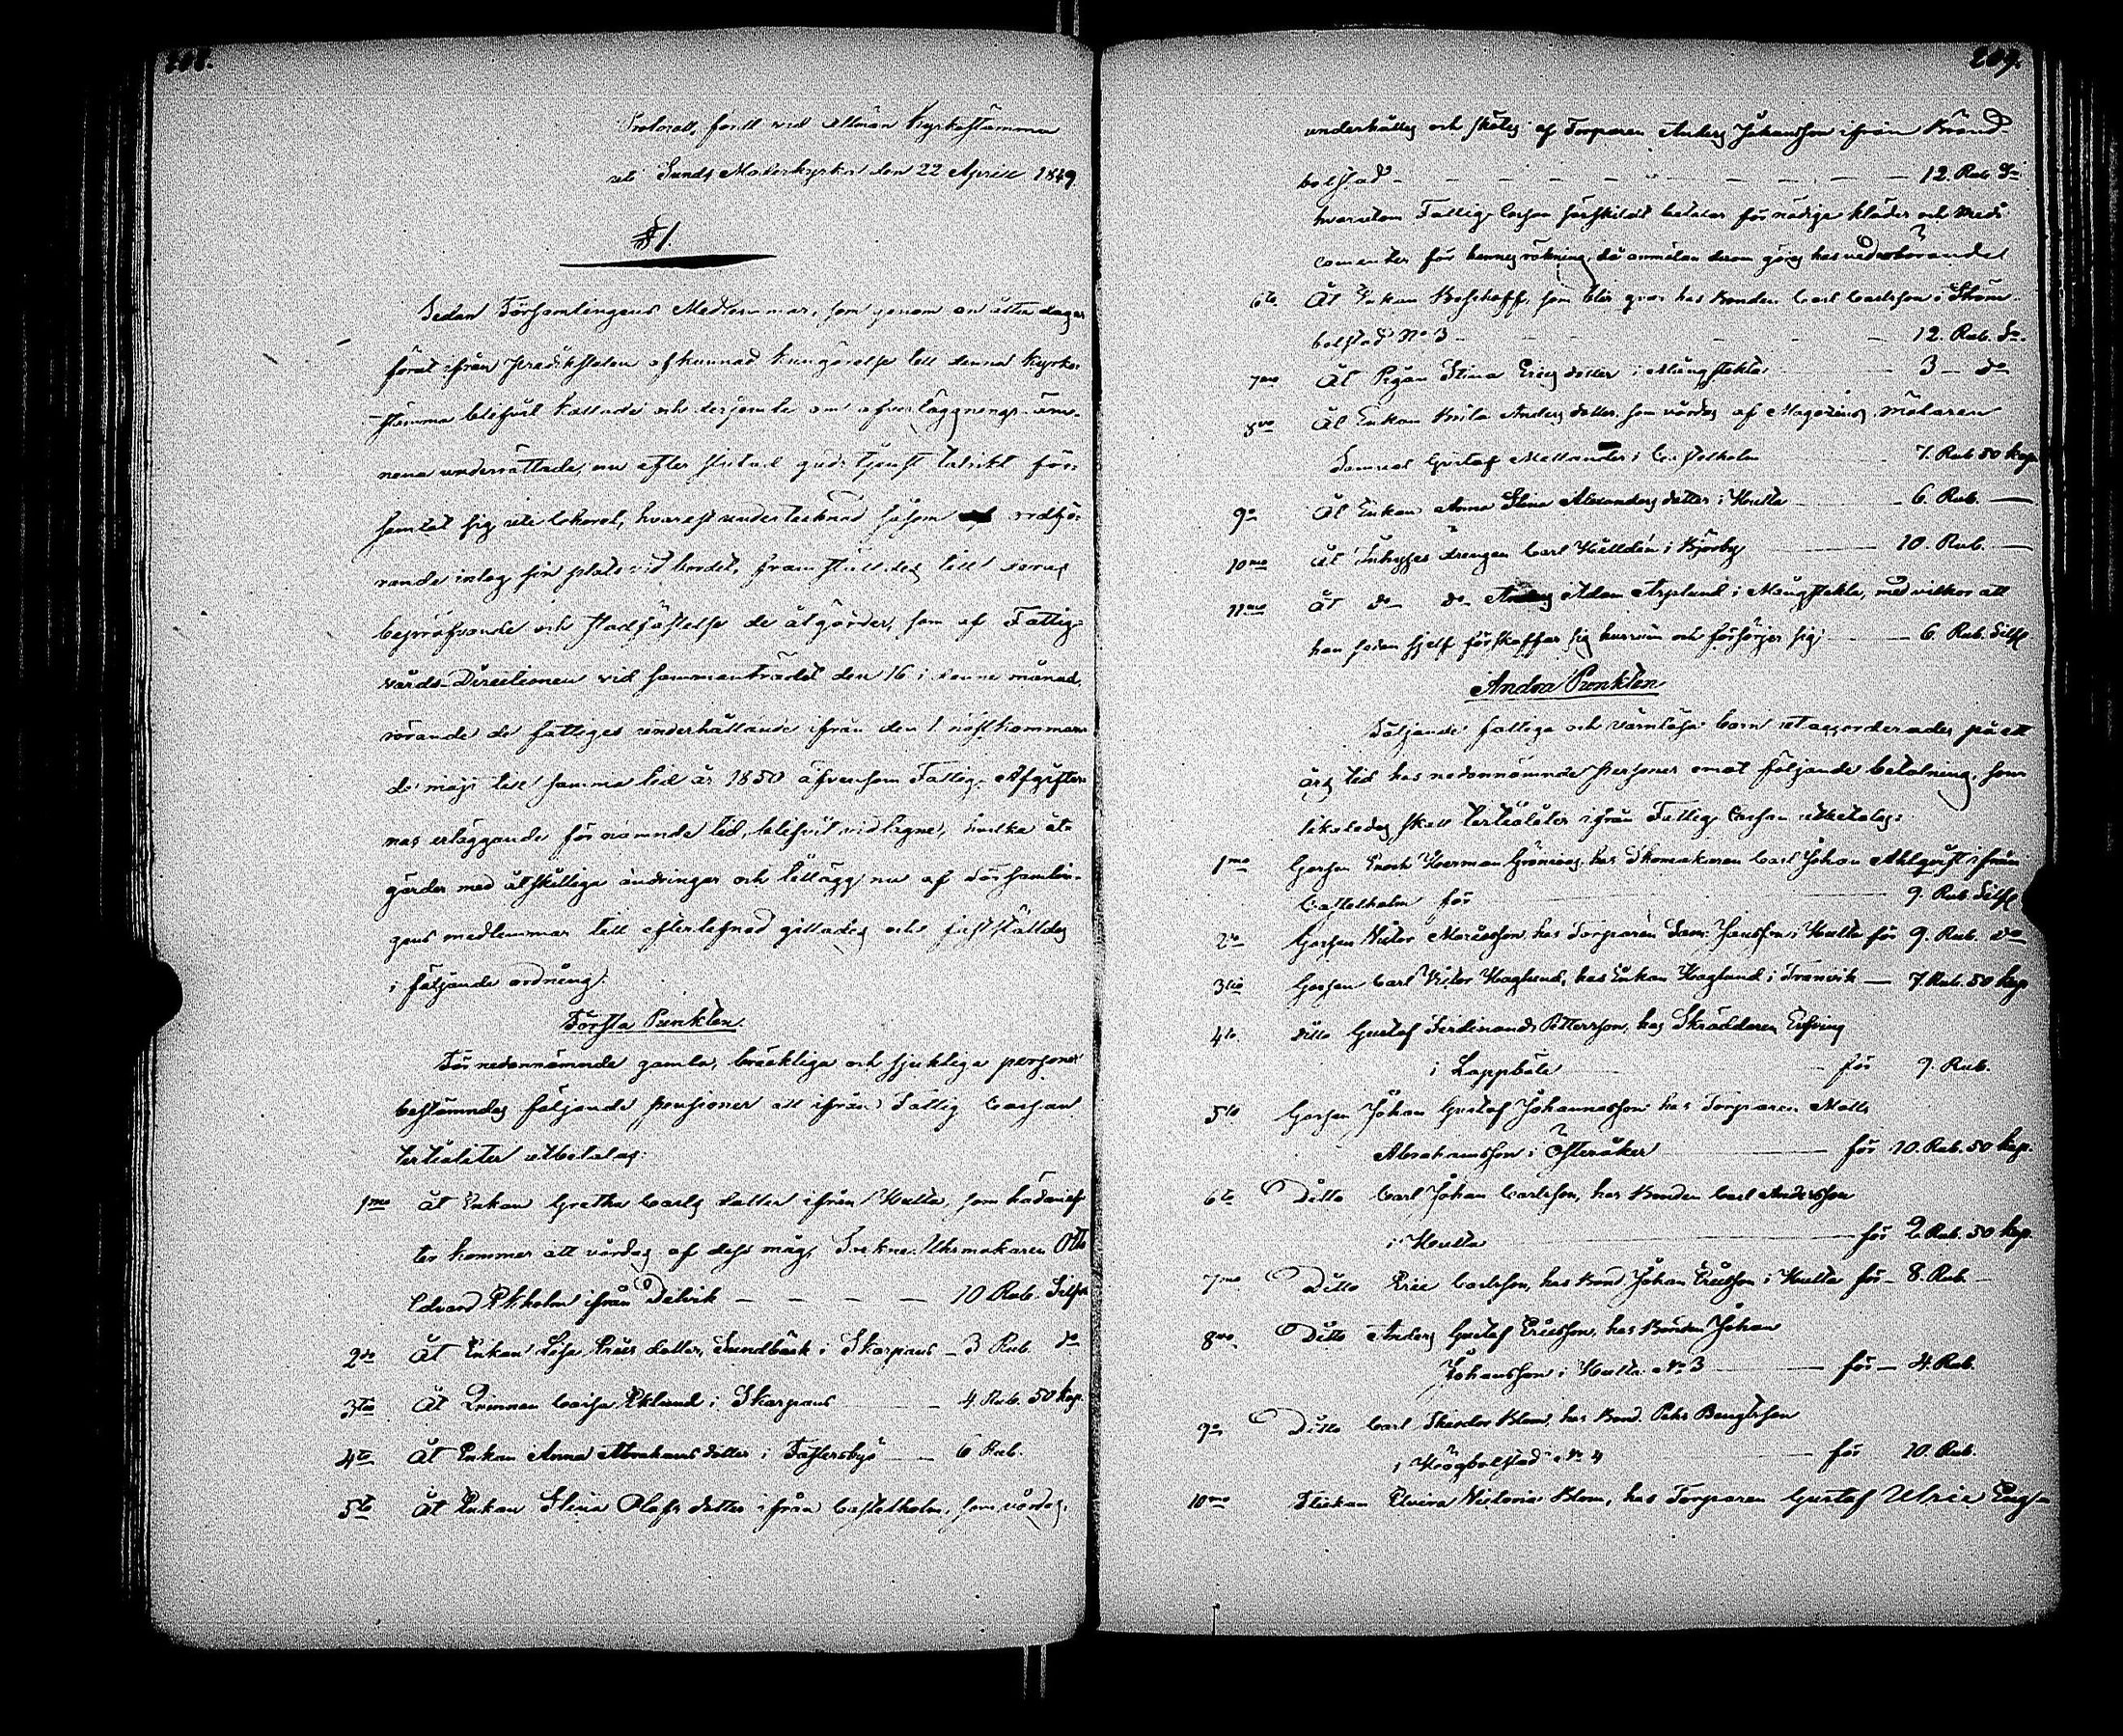 208.
Protocoll, fördt vid allmän Kyrkostämma
uti Sunds Moderkyrka den 22 Aprill 1849.
§ 1.
Sedan Församlingens Medlemmar, som genom en åtta dagar
förut ifrån predikstolen afkunnad kungörelse till denna Kyrko-
stämma blifvit kallade och derjemte om öfverläggnings-äm-
nena underrättade, nu efter slutad gudstjenst talrikt för-
samlat sig uti Choret, hvarest undertecknad såsom ordfö-
rande intog sin plats vid bordet, framställdes till deras
bepröfvande och stadfästelse de åtgärder, som af Fattig-
vårds-Directionen vid sammanträdet den 16 i denne månad,
rörande de fattiges underhållande ifrån den 1 nästkomman-
de maji till samma tid år 1850 äfvensom Fattig-Afgifter-
nas erläggande för nämnde tid, blifvit vidtagne, hvilka åt-
gärder med åtskillige ändringar och tillägg nu af Församlin-
gens medlemmar till efterlefnad gillades och fastställdes
i följande ordning:
Första Punkten.
För nedannämnde gamla, bräckliga och sjukliga personer
bestämdes följande pensioner att ifrån Fattig Cassan
tertialiter utbetalas:
1mo Åt Enkan Gretha Carls dotter ifrån Hulta, som hädanef-
ter kommer att vårdas af dess måg, Urmakaren Otto
Edvard Ekholm ifrån Delvik — — — — 10 Rub. Silfr
2do Åt Enkan Lisa Ericsdotter Sundbäck i Skarpans — 3 Rub. do
3tio Åt Qvinnan Caisa Eklund i Skarpans — 4 Rub. 50 kop.
4to Åt Enkan Anna Abrahamsdotter i Fastersby — 6 Rub.
5to Åt Enkan Stina Olofsdotter ifrån Castelholm, som vårdas,
209.
underhålles och skötes af Torparen Anders Johansson ifrån Bränd-
bolstad — — — — — — — 12. Rub. So
hvarutom Fattig-Cassan särskildt betalar för nödige kläder och medi-
camenter för hennes räkning, då anmälan derom göres hos vederbörande
6to Åt Enkan Boschoff, som blir qvar hos Bonden Carl Carlsson i Ström-
bolstad No 3 — — — — 12. Rub. So.
7mo Åt Pigan Stina Ericsdotter i Mångstekta — 3 — do
8vo Åt Enkan Brita Andersdotter, som vårdas af Magazins mätaren
Samuel Gustaf Mellander i Castelholm 7. Rub 50 kop
9o Åt Enkan Anna Stina Alexandersdotter i Hulta — 6. Rub. —
10mo Åt Inhyses drengen Carl Källdén i Björby — 10. Rub. —
11mo Åt do do Adam Asplund i Mångstekta, med vilkor att
han sedan sjelf förskaffar sig husrum och försörjer sig — 6 Rub. Silfr
Andra Punkten.
Följande fattiga och värnlösa barn utaccorderades på ett
års tid hos nedannämnde personer emot följande betalning, som
likaledes skall tertialiter ifrån Fattig Cassan utbetalas:
1mo Gossen Enoch Herman Grönvas, hos Skomakaren Carl Johan Ahlqvist ifrån
Castelholm för — 9. Rub. Silfr
2do Gossen Victor Mariesson, hos Torparen Sam. Jansson i Hulta för 9. Rub. do
3tio Gossen Carl Victor Haglund, hos Enkan Haglund i Tranvik — 7. Rub. 50 kop
4to. ditto Gustaf Ferdinand Pettersson, hos Skräddaren Elfving
i Lappböle — för 9. Rub.
5to Gossen Johan Gustaf Johannesson hos Torparen Matts
Abrahamsson i Österåker — för 10. Rub. 50 kop.
6to Ditto Carl Johan Carlsson, hos Bonden Carl Andersson
i Hulta — för 2. Rub. 50 kop.
7mo Ditto Eric Carlsson, hos Bond. Johan Ericsson i Hulta för — 8. Rub. —
8vo Ditto Anders Gustaf Ericsson, hos Bonden Johan
Johansson i Hulta No 3 — för — 4. Rub.
9o Ditto Carl Theodor Blom, hos Bond. Pehr Bengtsson
i Högbolstad No 4 — för 10. Rub.
10mo Flickan Elvira Victoria Blom, hos Torparen Gustaf Ulric Eng-